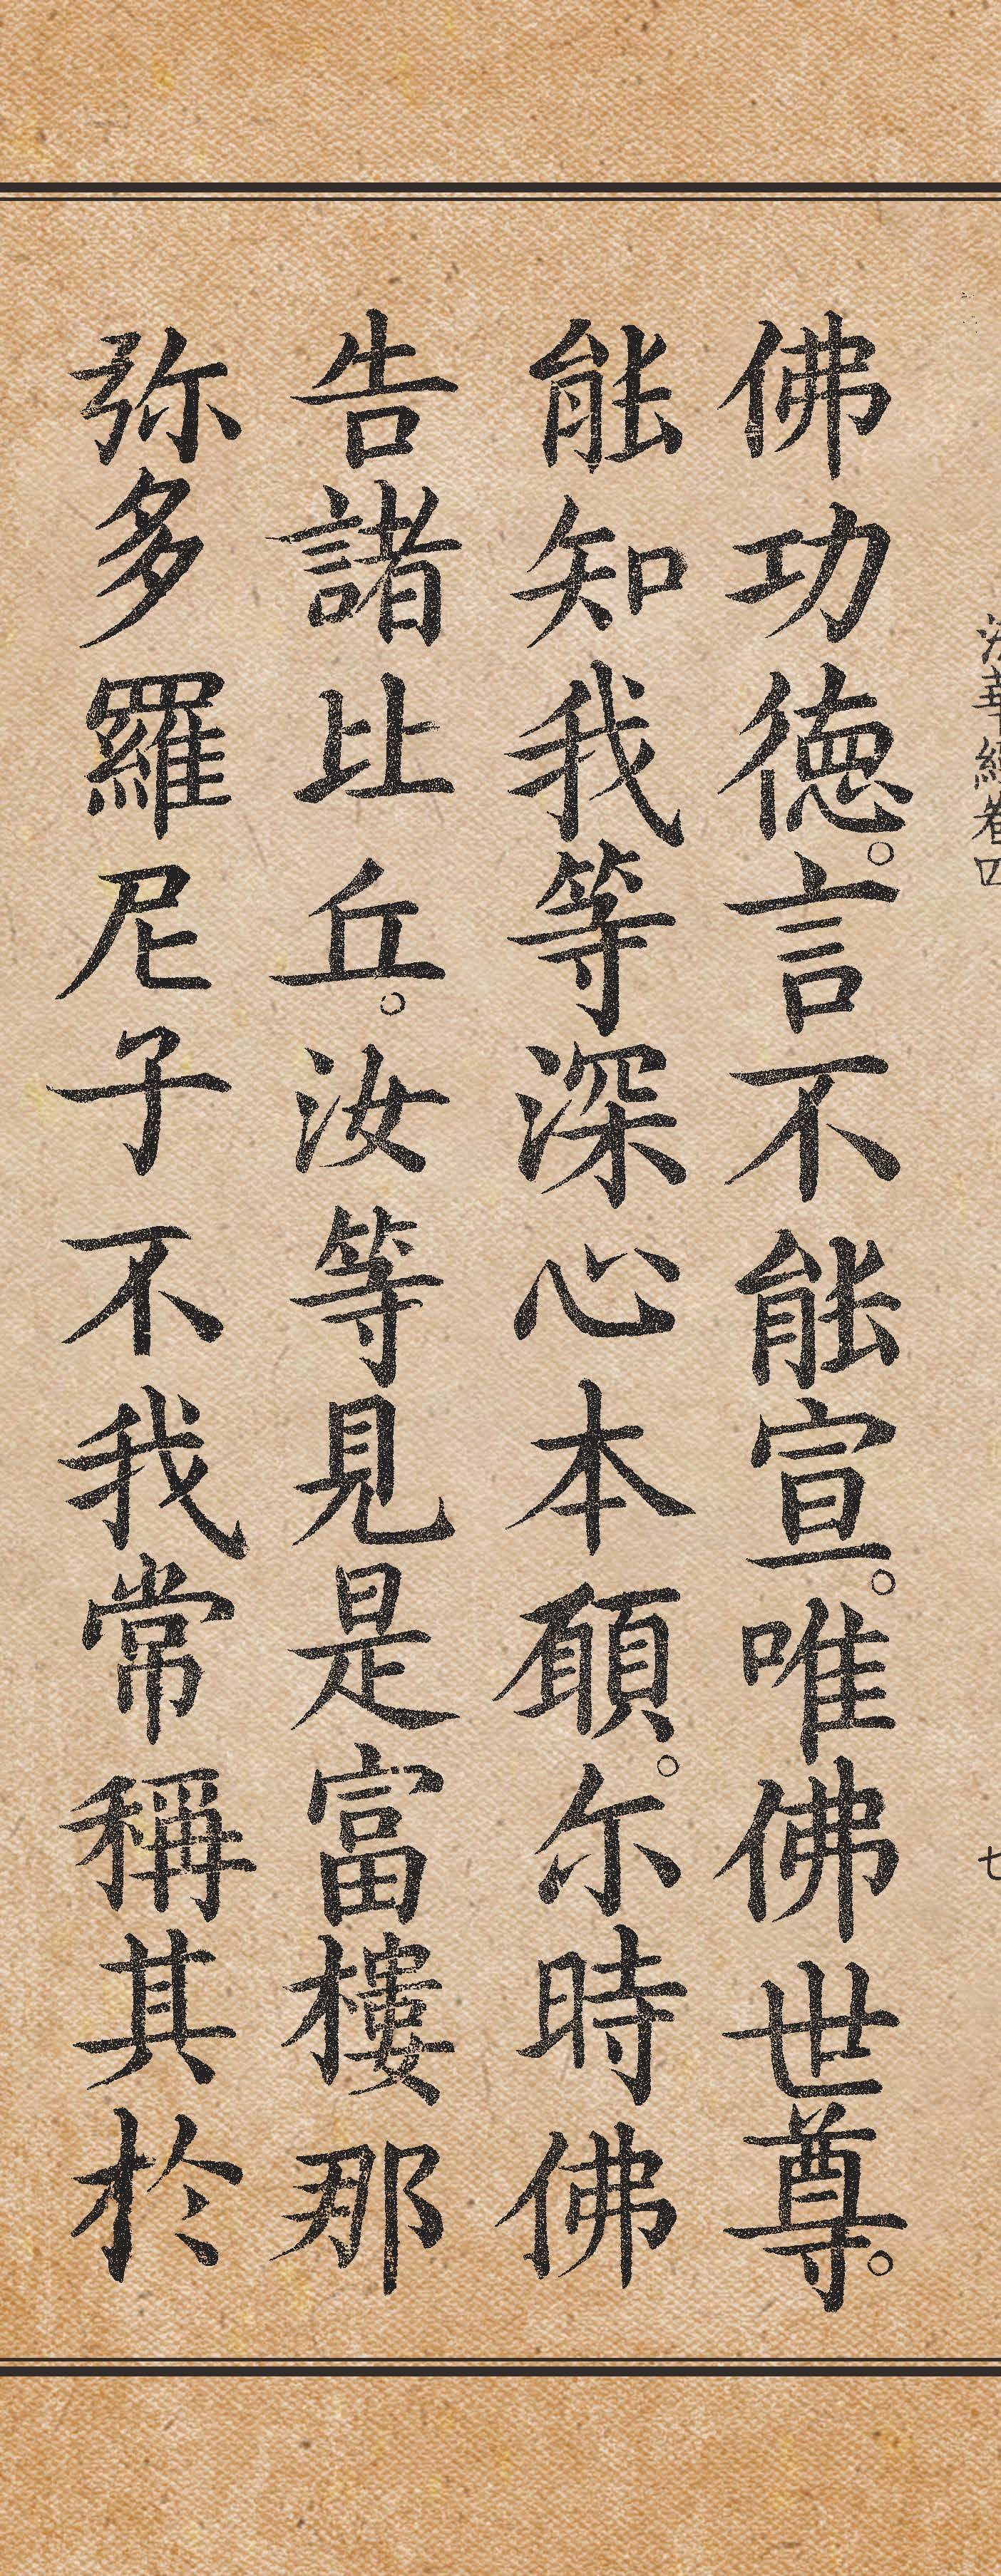 法華經卷四 七
佛功徳。言不能宣。唯佛世尊。
能知我等深心本願。尓時佛
告諸比丘。汝等見是富樓那
弥多羅尼子不我常稱其於